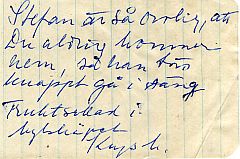 Stefan är så orolig, att
Du aldrig kommer
hem, så han törs
knappt gå i säng
Fruktsallad i
kylskåpet